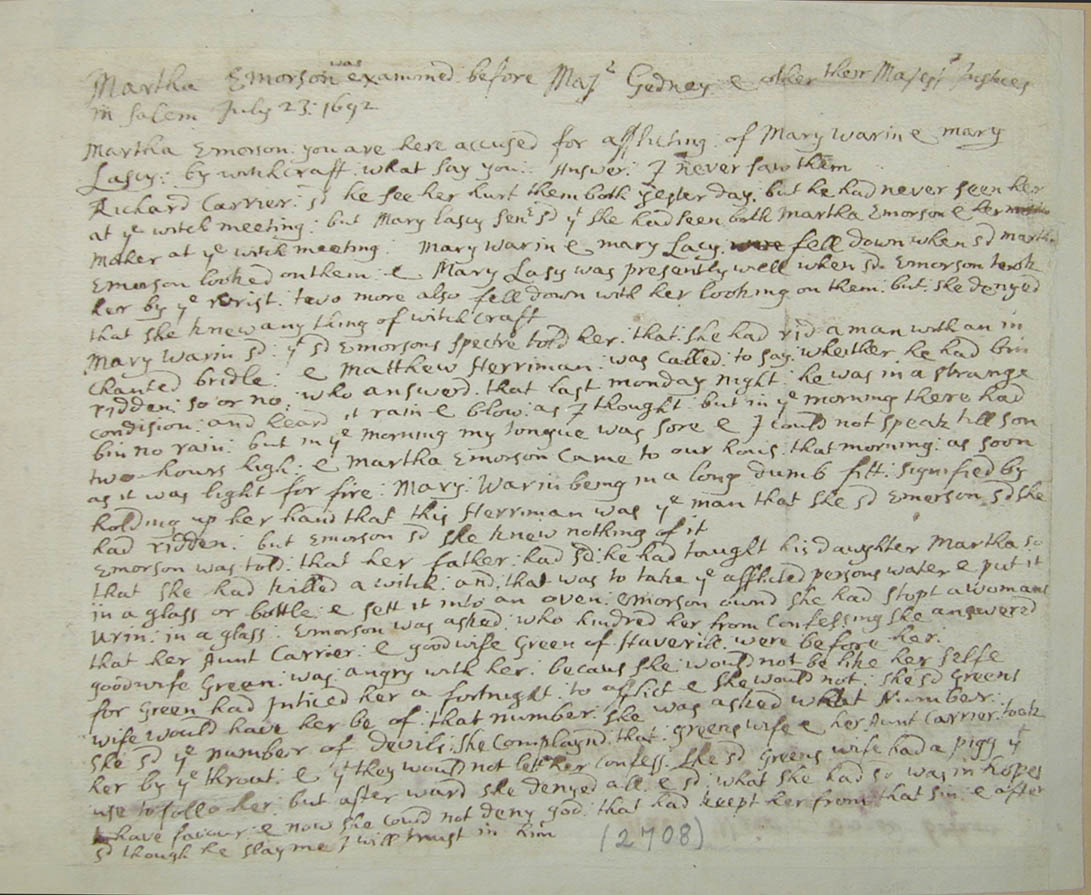 Martha Emorson was examined before Majr Gedney & other their Majests Justices
in Salem July 23: 1692
Martha Emorson: you are here accused for afflicting: of Mary Warin & mary
Lascy: by witchcraft: what say you: Answer: I never saw them
Richard Carrier: sd he see her hurt them both yester day: but he had never seen her
at ye witch meeting: but Mary Lascy Senr sd yt she had seen both Martha Emorson & her
Mother at ye witch meeting: Mary Warin & mary Lacy fell down when sd martha
Emorson looked on them: & Mary Lasy was presently well when sd Emorson took
her by ye wrist: two more also fell down with her looking on them: but: she denyed
that she knew any thing of witch craft
Mary Warin sd: yt sd Emorsons spectre told her: that: she had rid a man with an in
chanted bridle: & Matthew Herriman: was called: to say: whether he had bin
ridden: so or no: who answerd: that last monday night: he was in a strange
condision: and heard it rain & blow: as I thought: but in ye morning there had
bin no rain: but in ye morning my tongue was sore & I could not speak till son
two hours high: & Martha Emorson came to our hous: that morning: as soon
as it was light for fire: Mary: Warin being in a long dumb fitt: signified by
holding up her hand that this Herriman was ye man that she sd Emorson: sd she
had ridden: but Emorson sd she knew nothing of it
Emorson was told: that her father: had sd: he had tought his daughter Martha so
that she had killed a witch: and: that was to take ye afflicted persons water & put it
in a glass or bottle: & sett it into an oven: Emorson ownd she had stopt a womans
urin: in a glass: Emorson was asked: who hindred her from Confessing she answered
that her Aunt Carrier: & good wife Green of Haveril: were before her:
good wife Green: was angry with her: becaus she: would not be like her selfe
for Green had Inticed her a fortnight: to aflict & she would not: she sd Greens
wife would have her be of: that number: she was asked what Number:
she sd ye number of devils: She Complaynd: that: greens wife & her Aunt Carrier: took
her by ye throat: & yt they would not let her confess: she sd Greens wife had a pigg yt
use to follo her: but after ward she denyed all: & sd: what she had sd was in hopes
to have favour: & now she could not deny god: that had keept her from that sin: & after
sd though he slay me I will trust in him
(2708)